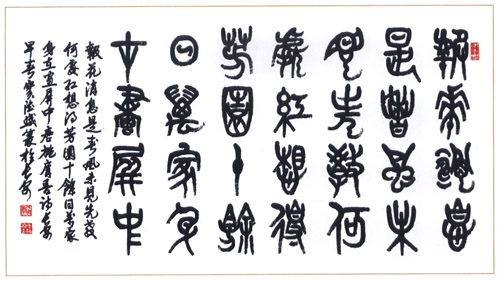 報花消息
是春風未
見先教何
處紅想得
芳園十餘
日萬家身
在畫屏中
報花消息是春風未見先教
何處紅想得芳園十餘日萬家
身在畫屏中唐施肩吾詩長安
早春於長安